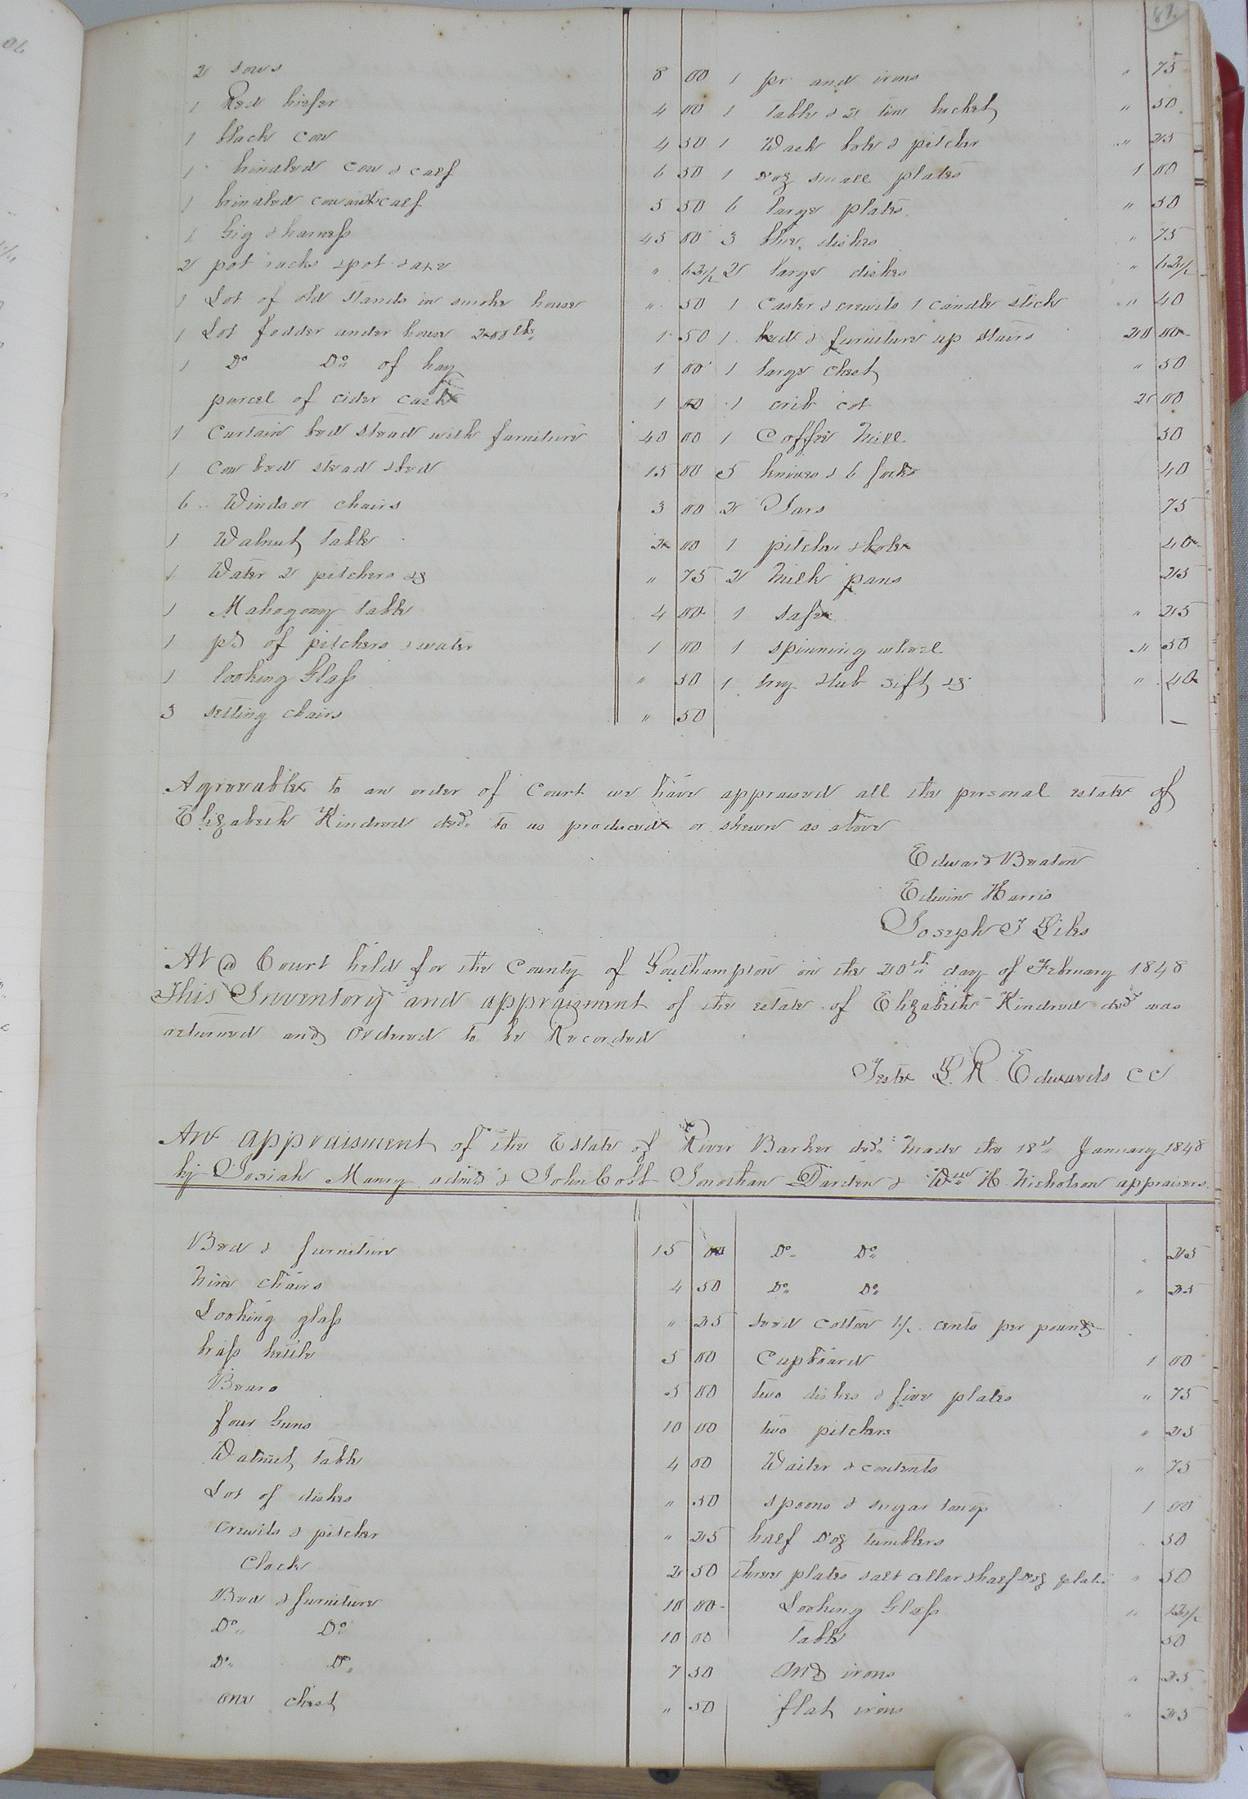 2 sows 8 00
1 Red hiefer 4 00
1 black cow 4 50
1 brindled cow & calf 6 50
1 brindled cow and calf 5 50
1 Gig & harness 45 00
2 pot racks & pot & axe " 62 1/2
1 Lot of old stands in smoke house " 50
1 Lot fodder under house 1 50
1 Do Do of hay 1 00
parcel of cider casks 1 00
1 Curtain bed stead with furniture 40 00
1 Cow bed stead & bed 15 00
6 Windsor chairs 3 00
1 Walnut table 2 00
1 Water 2 pitchers &c " 75
1 Mahogony table 4 00
1 pd of pitchers & water 1 00
1 looking Glass " 50
3 setting chairs " 50
1 pr and irons " 75
1 table & 2 tin bucket " 50
1 Wash bole & pitcher " 25
1 doz small plates 1 00
6 large plates " 50
3 blue dishes " 75
2 large dishes " 62 1/2
1 Caster & crewits 1 candle stick " 40
1 bed & furniture up stairs 20 00
1 large chest " 50
1 crib cot 2 00
1 Coffee Mill 50
5 knives & 6 forks 40
2 Jars 75
1 pitcher & bole 40
2 Milk pans 25
1 safe " 25
1 spinning wheel " 50
1 tray tub sift &c " 40
Agreeable to an order of Court we have appraised all the personal estate of
Elizabeth Kindred decd. to us produced or shewn as above
Edward Beaton
Edwin Harris
Joseph T Giles
At a Court held for the County of Southampton on the 20th day of February 1848
This Inventory and appraizment of the estate of Elizabeth Kindred decd was
returned and Ordered to be Recorded
Teste L. R. Edwards CC
An appraisment of the Estate of River Barker decd. made the 18th January 1848
by Josiah Maney admr & John Cobb Jonathan Darden & Wm H Nicholson appraisers.
Bed & furniture 15 00
Nine chairs 4 50
Looking glass " 25
brass kettle 5 00
Beauro 5 00
four Guns 10 00
Walnut table 4 00
Lot of dishes " 50
Crewits & pitcher " 25
Clock 2 50
Bed & furniture 10 00
Do Do 10 00
Do. Do. 7 50
one chest " 50
Do. Do. . 25
Do. Do. " 25
seed cotton 1 1/2 cents per pound
Cupboard 1 00
two dishes & five plates " 75
two pitchers " 25
Waiter & contents " 75
spoons & sugar tongs 1 00
half doz tumblers 50
three plates salt cellar & half doz plates " 50
Looking Glass " 12 1/2
table 50
And irons " 25
flat irons " 25